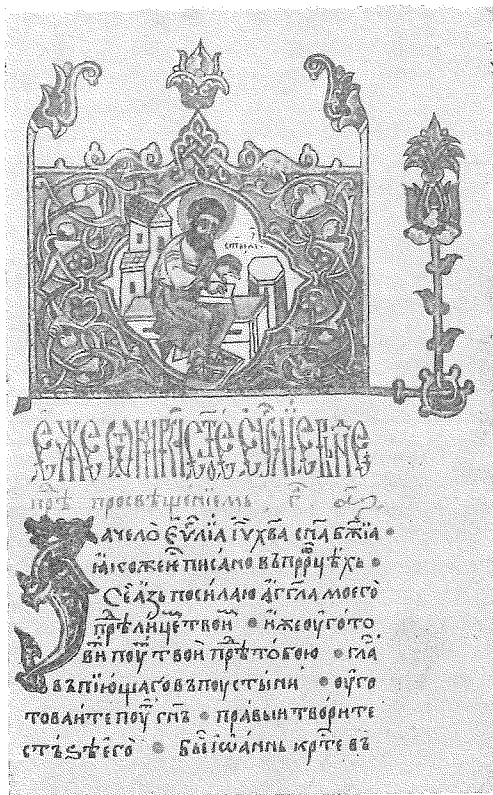 прѣⷣ просвѣщенїемь
Зачело еѵ҃лїа іѵ҃ х҃ва сн҃а бж҃їа •
ꙗкоже еⷭ писано въ пррⷪцѣхь •
Се азь посилаю агг҃ла моего
прѣⷣ лицеⷨ твоиⷨ • иже оугото
виⷮ поуⷮ твои прѣⷣ тобою • гла҃
въпїющаго въ поустыни • оуго
товаите поуⷮ гн҃ь • правы творите
стьѕѣ его • быⷭ іѡ҆аннь крⷭте въ